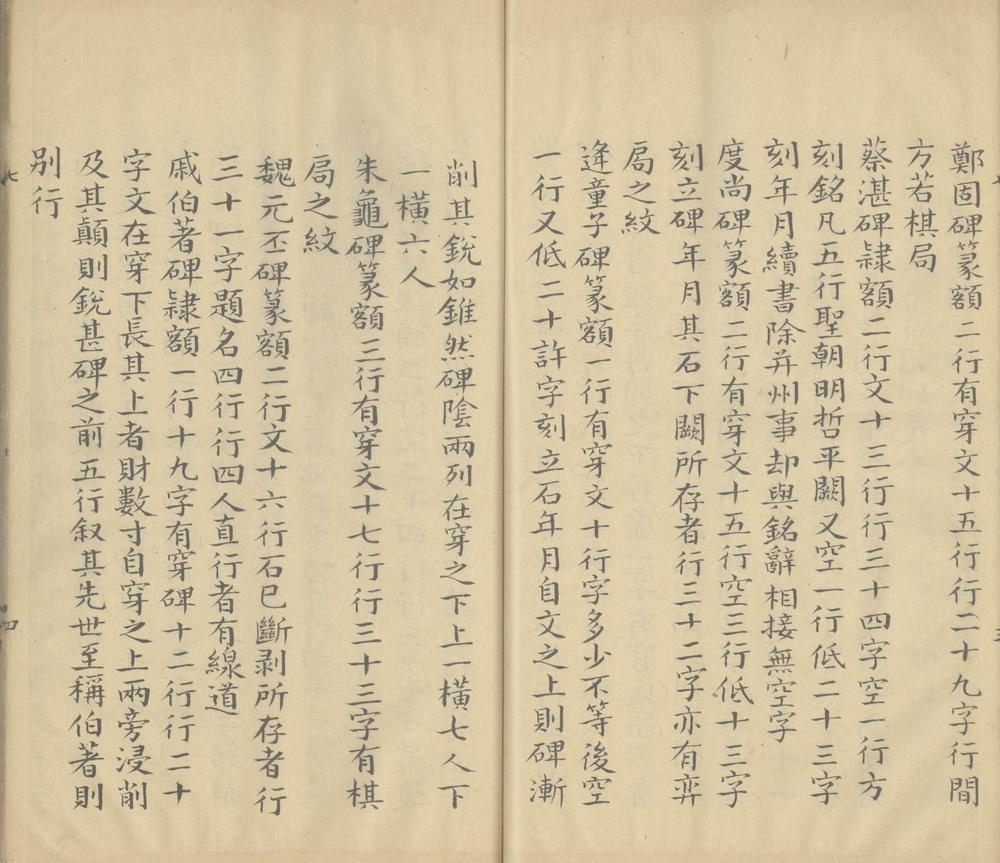 鄭固碑篆額二行有穿文十五行行二十九字行間
方若棋局
蔡湛碑隷額二行文十三行行三十四字空一行方
刻銘凡五行聖朝明哲平闕又空一行低二十三字
刻年月續書除并州事却與銘辭相接無空字
度尚碑篆額二行有穿文十五行空三行低十三字
刻立碑年月其石下闕所存者行三十二字亦有弈
局之紋
逄童子碑篆額一行有穿文十行字多少不等後空
一行又低二十許字刻立石年月自文之上則碑漸
削其銳如錐然碑陰兩列在穿之下上一橫七人下
一橫六人
朱龜碑篆額三行有穿文十七行行三十三字有棋
局之紋
魏元丕碑篆額二行文十六行石已斷剥所存者行
三十一字題名四行行四人直行者有線道
戚伯著碑隷額一行十九字有穿碑十二行行二十
字文在穿下長其上者財數寸自穿之上兩旁浸削
及其顛則銳甚碑之前五行叙其先世至稱伯著則
别行